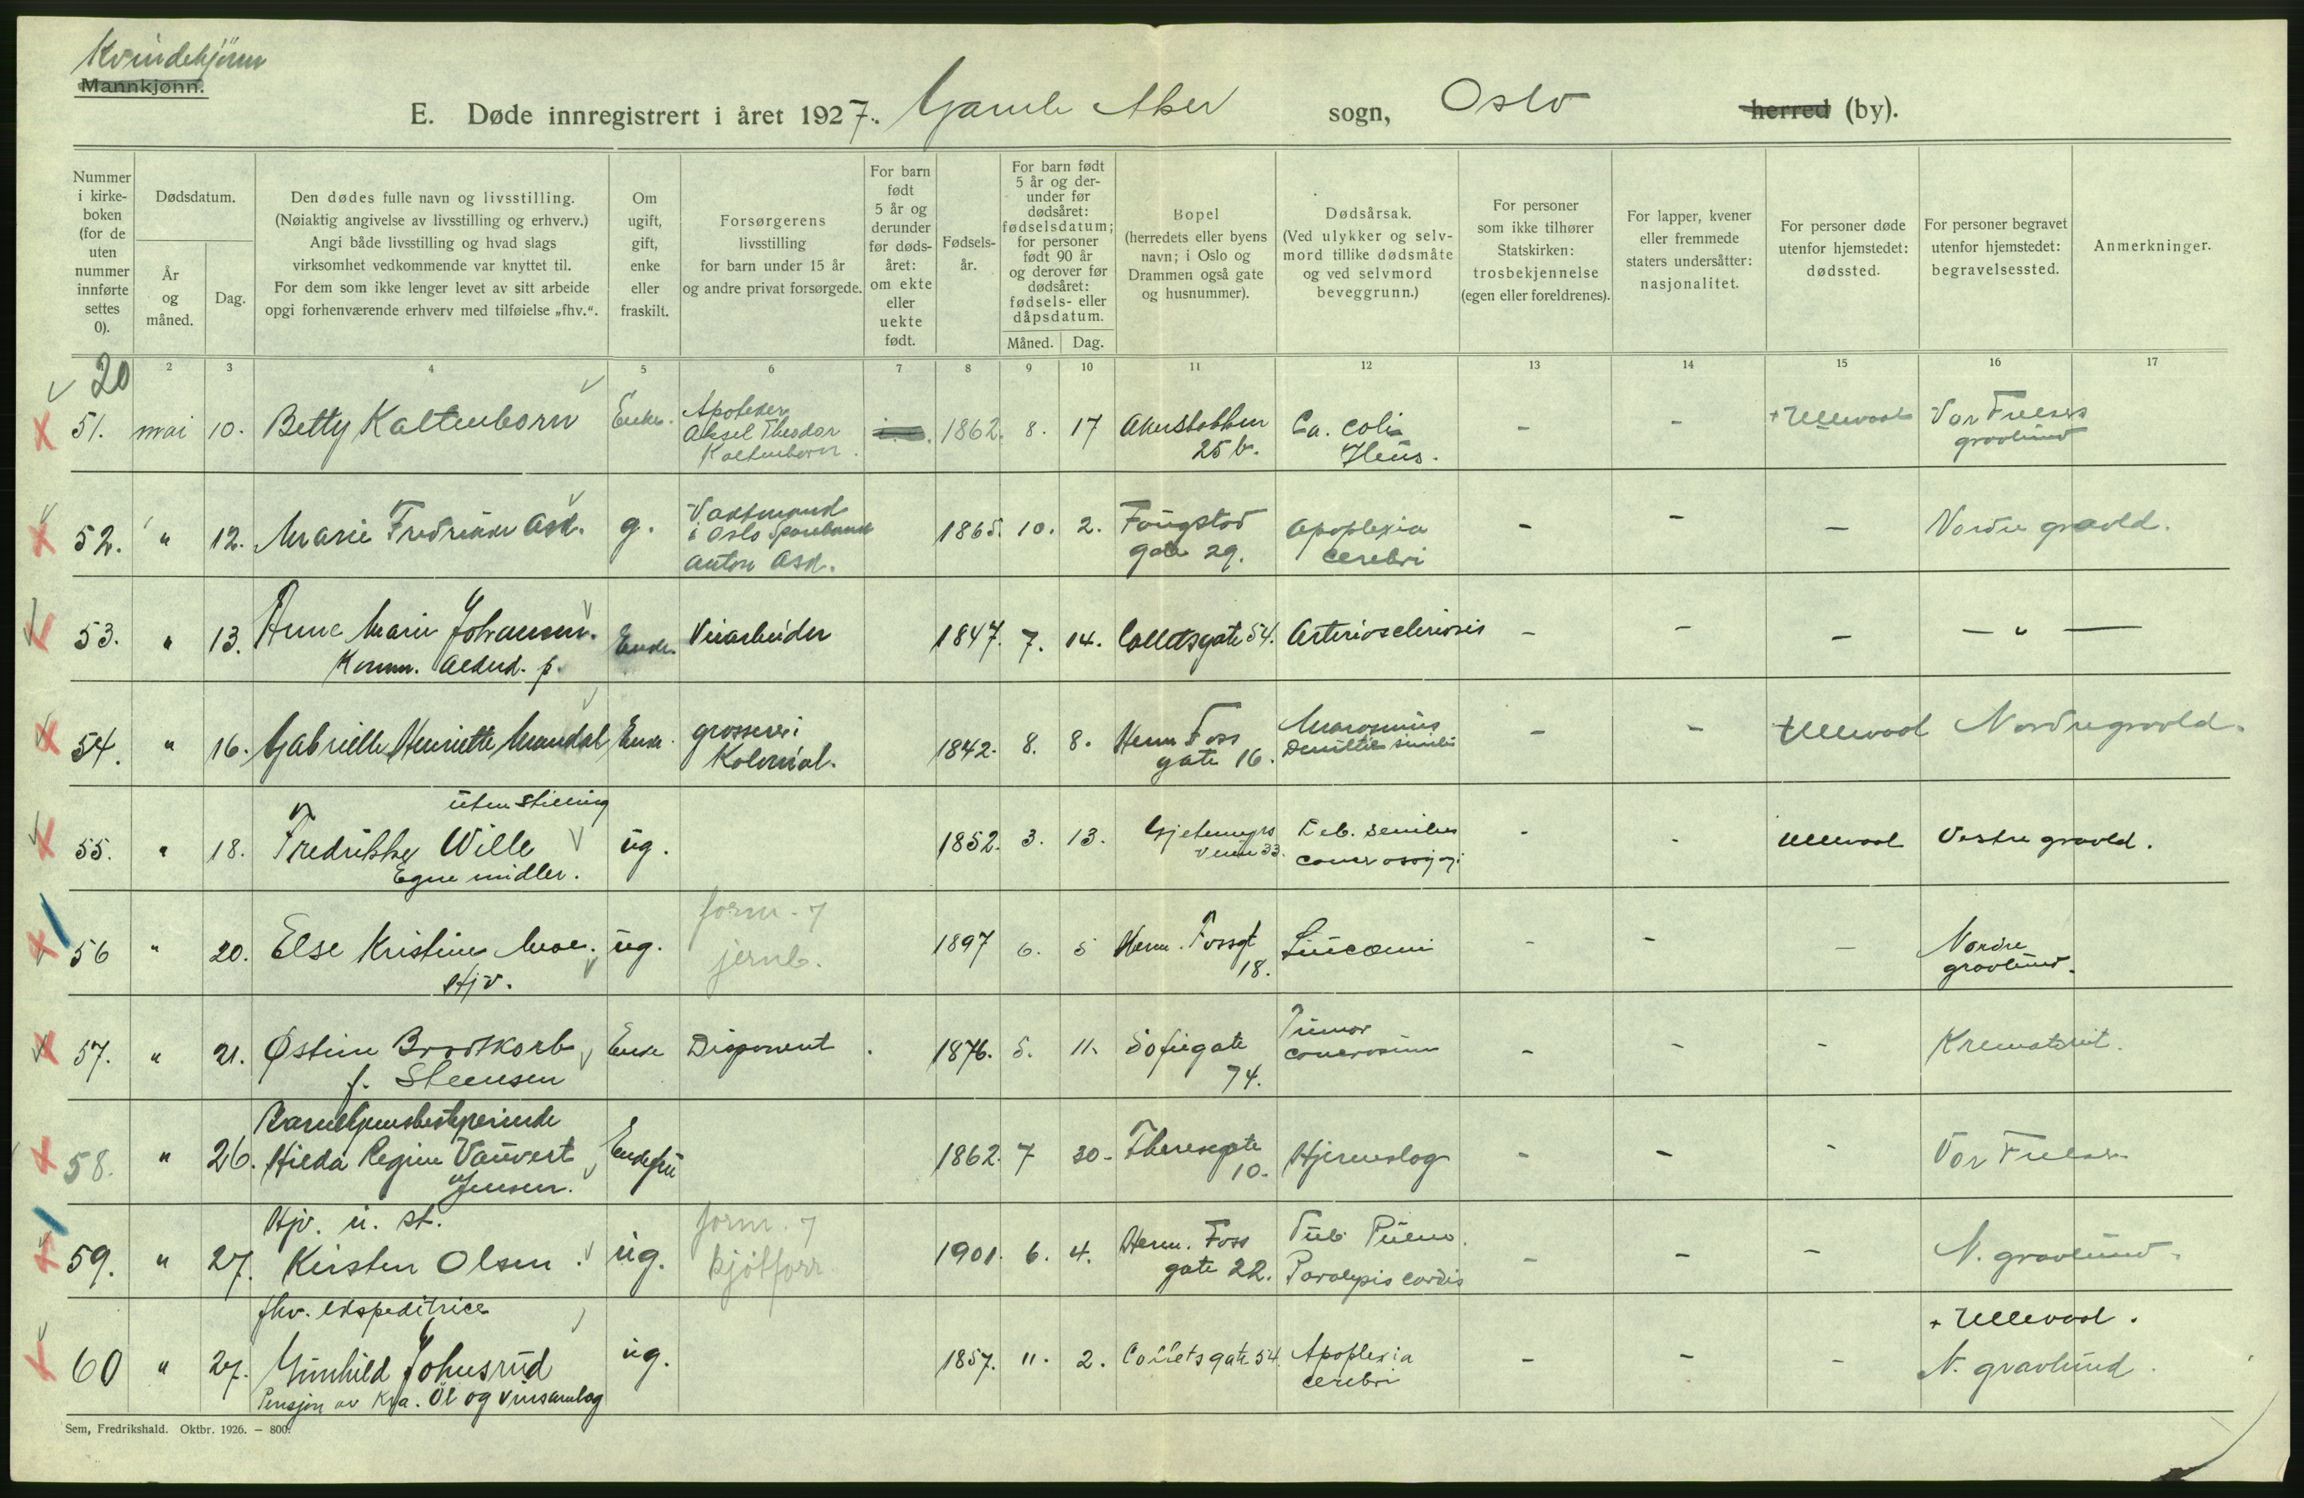 Kvindekjønn
Mannkjønn.
E. Døde innregistrert i året 1927. Gamle Aker sogn, Oslo herred (by).
Nummer i kirke-boken (for de uten nummer innførte settes 0).
Dødsdatum.
År og måned.
Dag.
Den dødes fulle navn og livsstilling.
(Nøiaktig angivelse av livsstilling og erhverv.)
Angi både livsstilling og hvad slags
virksomhet vedkommende var knyttet til.
For dem som ikke lenger levet av sitt arbeide
opgi forhenværende erhverv med tilføielse „fhv.“.
Om ugift, gift, enke eller fraskilt.
Forsørgerens
livsstilling
for barn under 15 år
og andre privat forsørgede.
For barn født 5 år og derunder før døds-året: om ekte eller uekte født.
Fødsels-år.
For barn født 5 år og der-under før dødsåret: fødselsdatum; for personer født 90 år og derover før dødsåret: fødsels- eller dåpsdatum.
Måned. Dag.
Bopel
(herredets eller byens
navn; i Oslo og
Drammen også gate
og husnummer).
Dødsårsak.
(Ved ulykker og selv-
mord tillike dødsmåte
og ved selvmord
beveggrunn.)
For personer
som ikke tilhører
Statskirken:
trosbekjennelse
(egen eller foreldrenes).
For lapper, kvener
eller fremmede
staters undersåtter:
nasjonalitet.
For personer døde
utenfor hjemstedet:
dødssted.
For personer begravet
utenfor hjemstedet:
begravelsessted.
Anmerkninger.
20 2 3 4 5 6 7 8 9 10 11 12 13 14 15 16 17
51. mai 10. Betty Kaltenborn Enke. Apoteker Aksel Theodor Kaltenborn. 1862. 8. 17 Akersbakken 25 b. Ca. coli Ileus. - - + Ullevaal Vor Frelsers gravlund
52. " 12. Marie Fredrikke Ask. g. Vaktmand i Oslo Sparebank Anton Ask. 1865. 10. 2. Fougstad gate 29. Apoplexia cerebri - - - Nordre gravld.
53. " 13. Anne Marie Johansen. Komm. Alderd. p. Enke. Veiarbeider 1847. 7. 14. Colletsgate 54. Arteriosclerosis - - - - " -
54. " 16. Gabrielle Henriette Mandal Enke. grosserer i Kolonial. 1842. 8. 8. Herm Foss gate 16. Marasmus senilis - - Ullevaal Nordre gravld.
55. " 18. uten stilling Fredrikke Wille Egne midler. ug. 1852. 3. 13. Gjetemyrs veien 33. Deb. senilis - - Ullevaal Vestre gravld.
56 " 20. Else Kristine Moe. Hjv. ug. form. 7 jernb. 1897 6. 5 Herm. Fossgt 18. - - - Nordre gravlund.
57. " 21. Østine Brodtkorb f. Steensen Enke Disponent. 1876. 5. 11. Sofiegate 74. Tumor - - - Krematoriet.
58. " 26. Barnehjemsbestyrerinde Hilda Regine Vauvert Jensen. Enkefru 1862. 7 30. Theresegate 10. Hjerneslag - - - Vor Frelser
59. " 27. Hjv. u. st. Kirsten Olsen. ug. form. 7 kjøtforr. 1901. 6. 4. Herm. Foss gate 22. Tub. Pulm. Paralysis cordis - - - N. gravlund.
60 " 27. fhv. ekspeditrice Gunhild Johnsrud Pensjon av Kra. Øl og Vinsamlag ug. 1857. 11. 2. Colletsgate 54. Apoplexia cerebri - - - + Ullevaal. N. gravlund.
Sem, Fredrikshald. Oktbr. 1926. — 800.